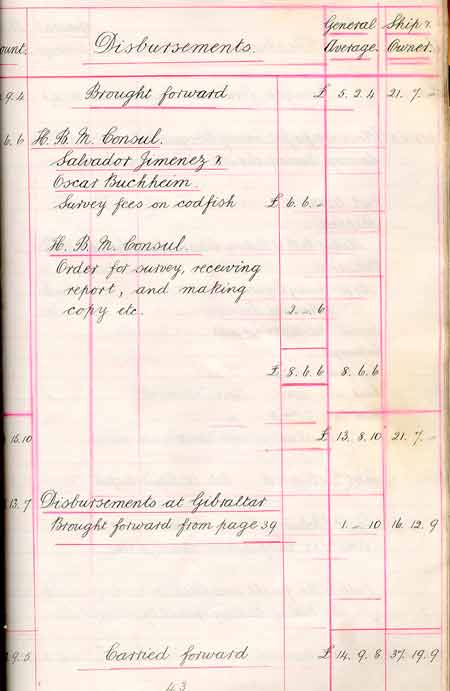 General Ship &
ount. Disbursements. Average. Owner.
9.4 Brought forward £ 5.2.4 21.7.-
6.6 H.B.M. Consul.
Salvador Jimenez &
Oscar Buchheim.
Survey fees on codfish £ 6.6.-
H.B.M. Consul.
Order for survey, receiving
report, and making
copy etc. 2.-.6
£ 8.6.6 8.6.6
15.10 £ 13.8.10 21.7.-
13.7 Disbursements at Gibraltar
Brought forward from page 39 1.-.10 16.12.9
9.5 Carried forward £ 14.9.8 37.19.9
43